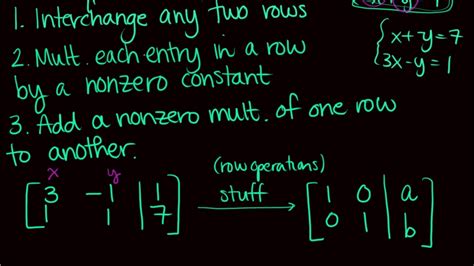 1. Interchange any two rows
2. Mult. each entry in a row
by a nonzero constant
3. Add a nonzero mult. of one row
to another.
x+y=7
3x-y=1
x y
3 -1 | 1
1 1 | 7
(row operations)
stuff
1 0 | a
0 1 | b